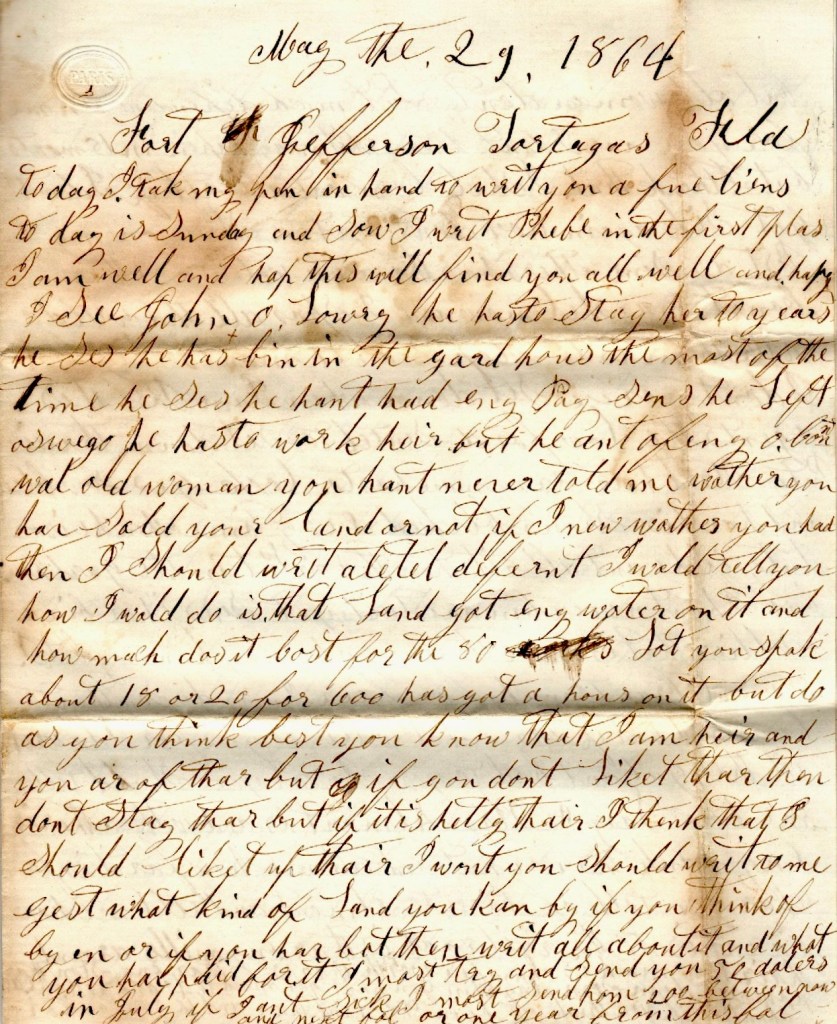 PARIS
May the. 29, 1864
Fort Jefferson Tortugas Fld
to day I. tak my pen in hand to writ you a fue liens
to day is Sunday and Sow I writ Phebe in the first plas
I am well and hap this will find you all well and hapy
I See John O. Lowry he hasto Stay her to years
he Ses he has bin in the gard hous the most of the
time he Ses he hant had eny Pay Sens he Left
oswego he hasto work heir but he ant of eny
wal old woman you hant never told me wather you
har Sold your land or not if I new wather you had
then I Should writ aletel defernt I wold tell you
how I wold do is. that Land got eny water on it and
how mach dos it cost for the 80 Lot you spok
about 18 or 20 for 600 has got a hous on it but do
as you think best you know that I am heir and
you ar of thar but if you dont Liket thar then
dont Stay thar but if it is helty thair I thenk that I
Should liket up thair I wont you Should writ to me
gest what kind of Land you kan by if you think of
by en or if you har bot then writ all about it and what
you har paid for it I most try and Send you 50 dolers
in July if I ant Sick I most Send hom 200 between now
and next or one year from this